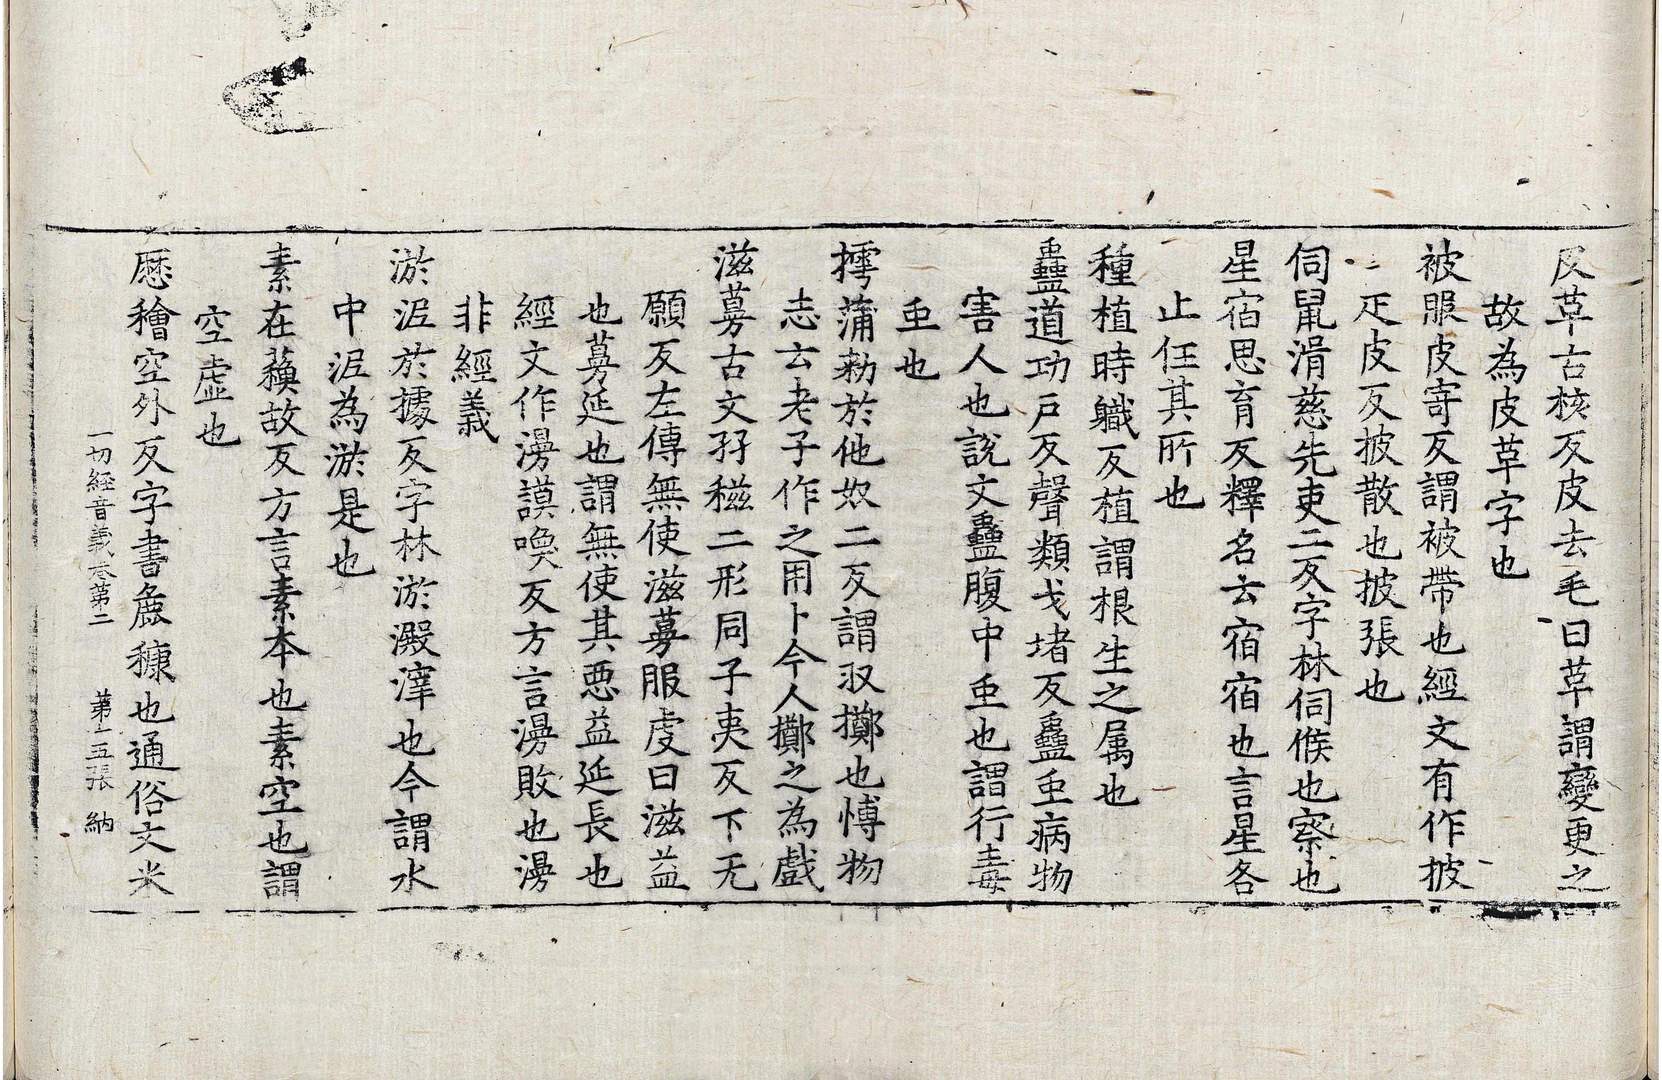 皮草古核反皮去毛曰草謂變更之
故為皮草字也
被服皮寄反謂被帶也經文有作披
疋皮反披散也披張也
伺鼠㵪慈先吏二反字林伺候也察也
星宿思育反釋名云宿宿也言星各
止任其所也
種植時職反植謂根生之属也
蠱道功戶反聲類弋堵反蠱䖝病物
害人也說文蠱腹中䖝也謂行毒
䖝也
摴蒲勑於他奴二反謂㕛擲也博物
志云老子作之用卜今人擲之為戲
滋蔓古文孖稵二形同子夷反下无
願反左傳無使滋蔓服虔曰滋益
也蔓延也謂無使其惡益延長也
經文作漫謨喚反方言漫敗也漫
非經義
淤泥於據反字林淤澱滓也今謂水
中泥為淤是也
素在蘓故反方言素本也素空也謂
空虛也
㕓穭空外反字書麁穅也通俗文米
一切經音義卷第二 第十五張 納